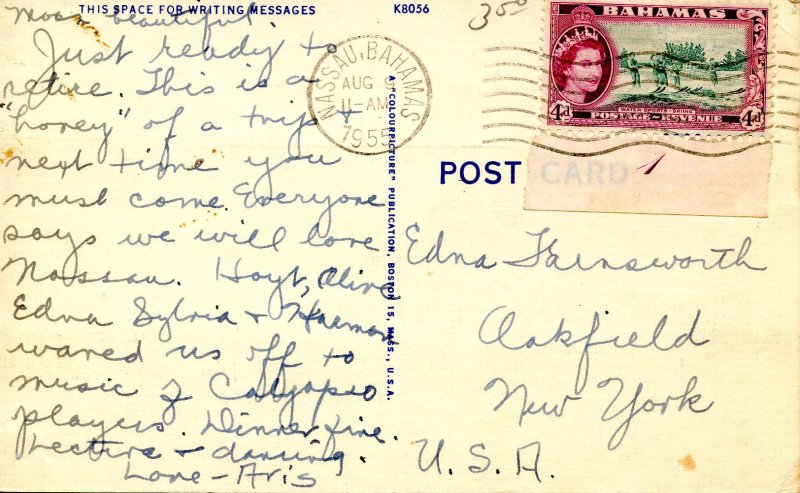 THIS SPACE FOR WRITING MESSAGES
K8056
most beautiful.
Just ready to
retire. This is a
"honey" of a trip &
next time you
must come. Everyone
says we will love
Nassau. Hoyt, Olive
Edna Sylvia & Harmon
waved us off to
music of Calypso
players. Dinner fine.
Lecture & dancing.
Love - Avis
A "COLOURPICTURE" PUBLICATION, BOSTON 15, MASS., U.S.A.
3.50
NASSAU, BAHAMAS
AUG 9
11-AM
1955
BAHAMAS
4d
4d
WATER SPORTS - SKIING
POSTAGE & REVENUE
POST CARD
1
Edna Farnsworth
Oakfield
New York
U.S.A.